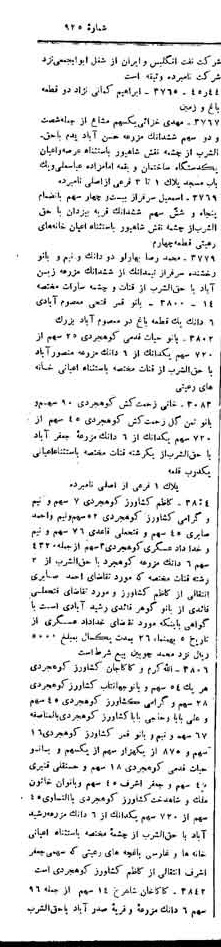 شمارهٔ ۹۲۵
شرکت نفت انگلیس و ایران از شغل ابوابجمعی نزد
شرکت نامبرده وثیقه است
۴۴ر۴۵ - ۳۷۶۵ - ابراهیم کمانی نژاد دو قطعه
باغ و زمین
۳۷۶۷ - مهدی خزائی یکسهم مشاع از جمله شصت
و دو سهم ششدانك مزرعه حسن آباد بدم باحق‌
الشرب از چشمه نقش شاهپور باستثناء عرصه واعیان
یکدستگاه ساختمان و بقعه امامزاده عباسعلی ویك
باب مسجد پلاك ۱ تا ۳ فرعی از اصلی نامبرده
۳۷۶۹ - اسمعیل سرفراز بیست و چهار سهم بانضمام
پنجاه و شش سهم ششدانك قریه بیزدان با حق
الشرب از چشمه نقش شاهپور باستثناء اعیان خانه‌های
رعیتی قطعه چهارم
۳۷۷۹ - محمد رضا بهارلو دو دانك و نیم و بانو
رخشنده سرفراز نیمدانك از ششدانك مزرعه زیبن
آباد با حق‌الشرب از قنات و چشمه سارات مختصه
۱۴ - ۳۸۰۰ - بانو قمر فتحی معصوم آبادی
۶ دانك یك قطعه باغ در معصوم آباد بزرك
۳۸۰۲ - بانو حیات قدمی کوهجردی ۲۵ سهم از
۷۲۰ سهم یکدانك از ۶ دانك مزرعه منصورآباد
با حق‌الشرب از قنات مختصه باستثناء اعیانی خانه
های رعیتی
۳۰۸۳ - خانی زحمت کش کوهجردی ۹۰ سهم و
بانو تمن گل زحمت کش کوهجردی ۴۵ سهم از
۷۲۰ سهم یکدانك از ۶ دانك مزرعه جعفر آباد
با حق‌الشرب از یکرشته قنات مختصه باستثناء اعیانی
یکدرب قلعه
پلاك ۱ فرعی از اصلی نامبرده
۳۸۰۴ - کاظم کشاورز کوهجردی ۷ سهم و نیم
و گرامی کشاورز کوهجردی ۵۲ سهم و نیم واحمد
صابری ۴۵ سهم و فتحعلی قاعدی ۷۶ سهم و نیم
و خداداد عسکری کوهجردی ۳ سهم از جمله ۴۳۲۰
سهم ۶ دانك مزرعه کوهجرد با حق‌الشرب از ۲
رشته قنات مختصه که مورد تقاضای احمد صابری
انتقالی از کاظم کشاورز و مورد تقاضای فتحعلی
قائدی از بانو گوهر قائدی رشید آبادی است با
گواهی باینکه مورد تقاضای خداداد عسکری از
تاریخ ۵ بهمنماه ۲۶ بمدت یکسال بمبلغ ۵۰۰۰
ریال نزد محمد چوبین بیع شرط است
۳۸۰۶ - الله کرم و کاکاجان کشاورز کوهجردی
هر یك ۵۴ سهم و بانو جهانتاب کشاورز کوهجردی
۲۸ سهم و گرامی کشاورز کوهجردی ۴۵ سهم
و علی بابا وحاجی بابا کشاورز کوهجردی بالمناصفه
۶۷ سهم و نیم و بانو قمر کشاورز کوهجردی ۱۶
سهم و ۸۷۵ از یکهزار سهم از یکسهم و بانو
حیات قدمی کوهجردی ۱۸ سهم و حسنقلی قنبری
۴۰ سهم و جعفر اشرف ۴۵ سهم وبانوان خاتون
ملك و شاهدخت کشاورز کوهجردی بالتساوی ۴۵
سهم از ۷۲۰ سهم یکدانك از ۶ دانك مزرعه رشید
آباد با حق‌الشرب از چشمه مختصه باستثناء اعیانی
خانه ها و غارسی باغچه های رعیتی که سهمی جعفر
اشرف انتقالی از کاظم کشاورز کوهجردی است
۳۸۴۲ - کاکاخان شاهرخ ۱۴ سهم از جمله ۹۶
سهم ۶ دانك مزرعه و قریه صدر آباد باحق‌الشرب